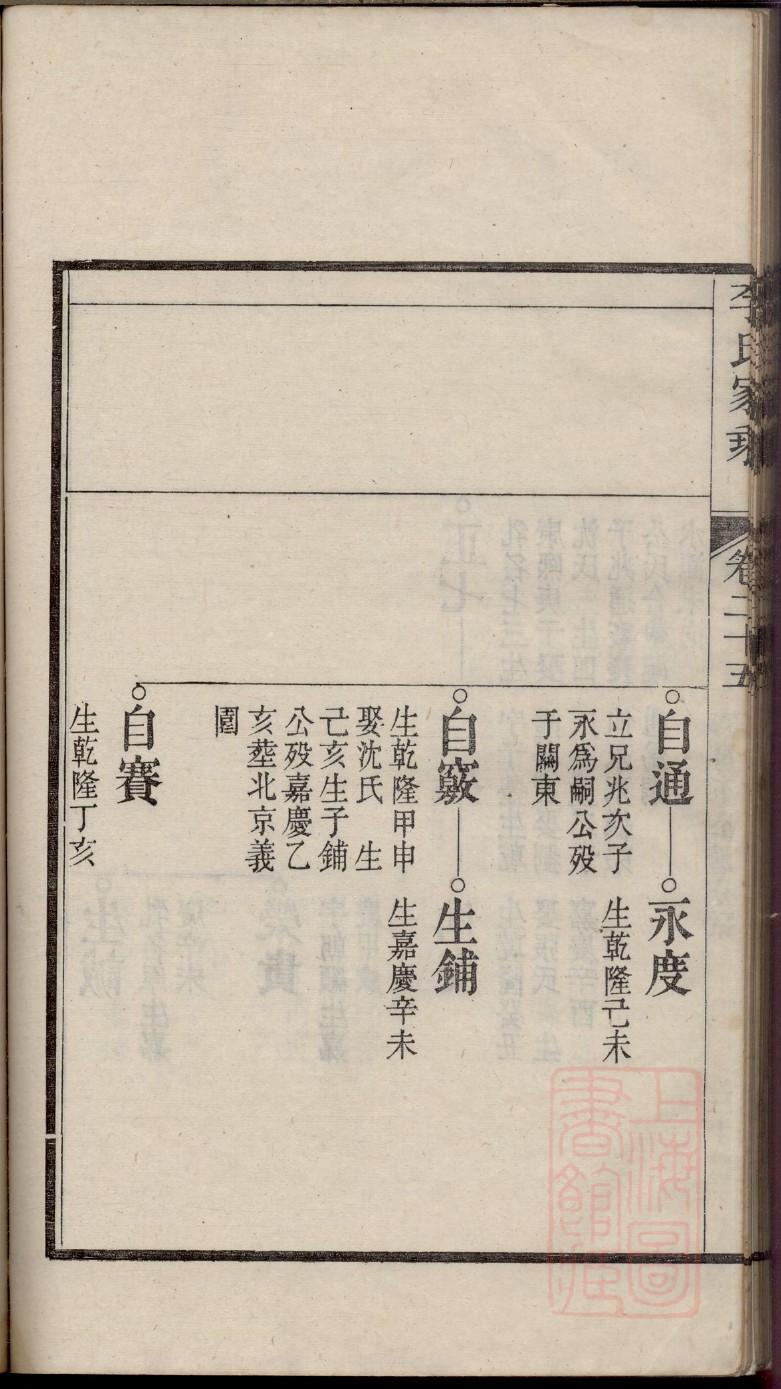 李氏家乘
卷二十五
自通
立兄兆次子
永爲嗣公歿
于關東
永度
生乾隆己未
自竅
生乾隆甲申
娶沈氏　生
己亥生子鋪
公歿嘉慶乙
亥塟北京義
園
生鋪
生嘉慶辛未
自賽
生乾隆丁亥
上海圖
書館藏